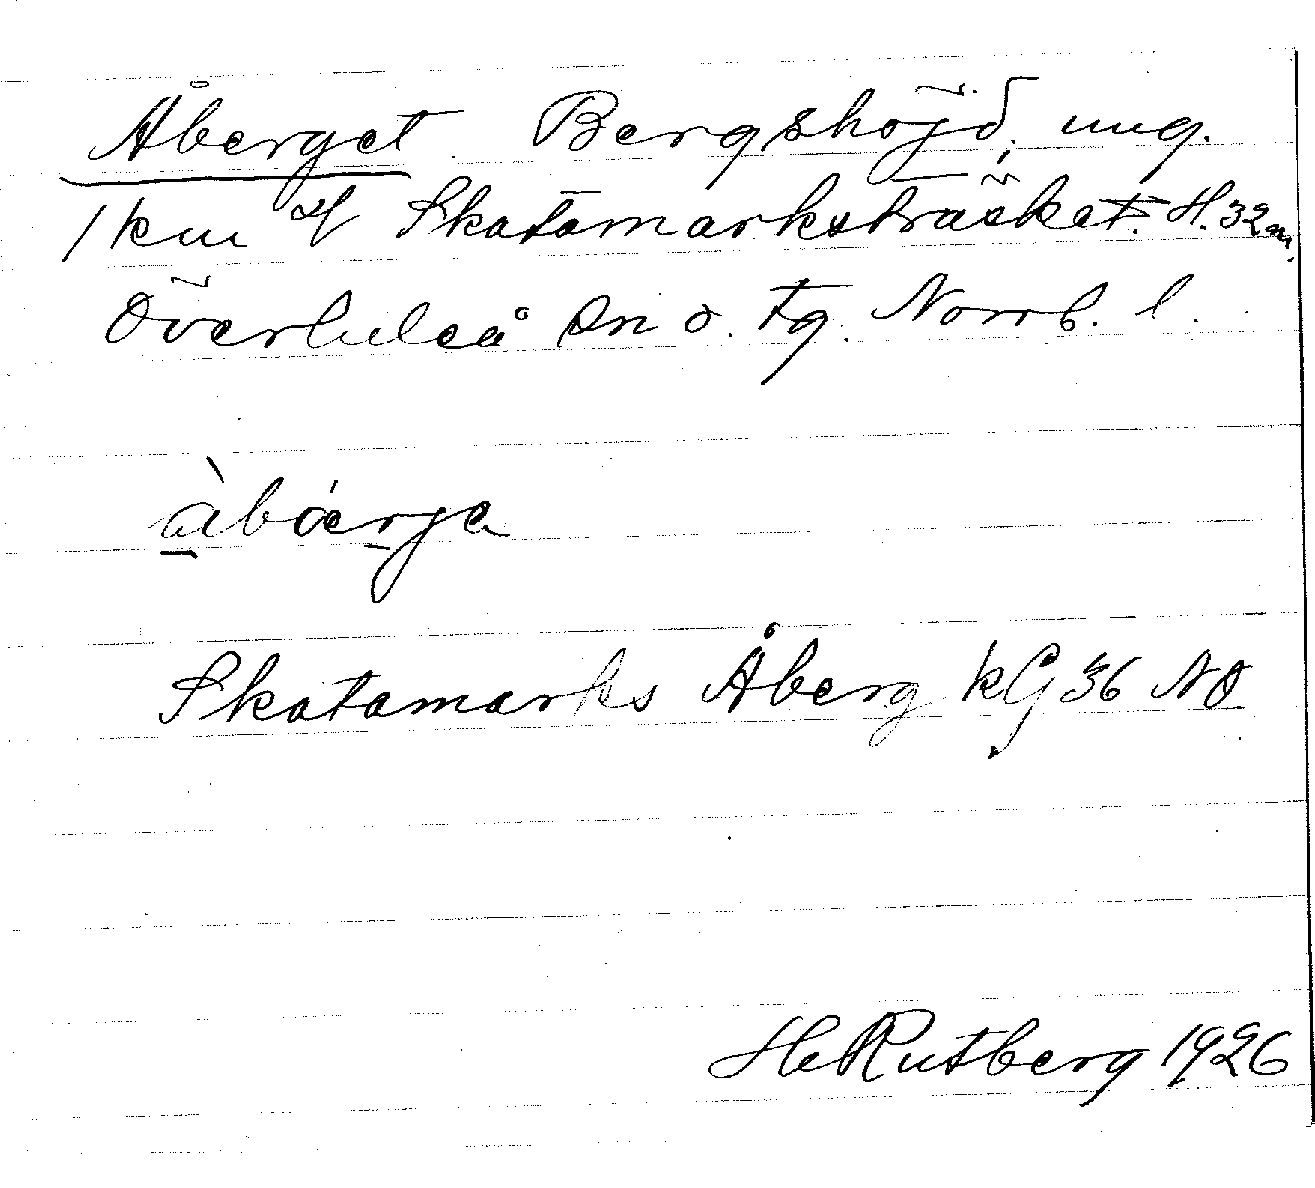 Åberget Bergshöjd, ung.
1 km N Skatamarksträsket. H. 32 m.
Överluleå sn o. tg. Norrb. l.
àbáerje
Skatamarks Åberg kG 36 NO
HRutberg 1926